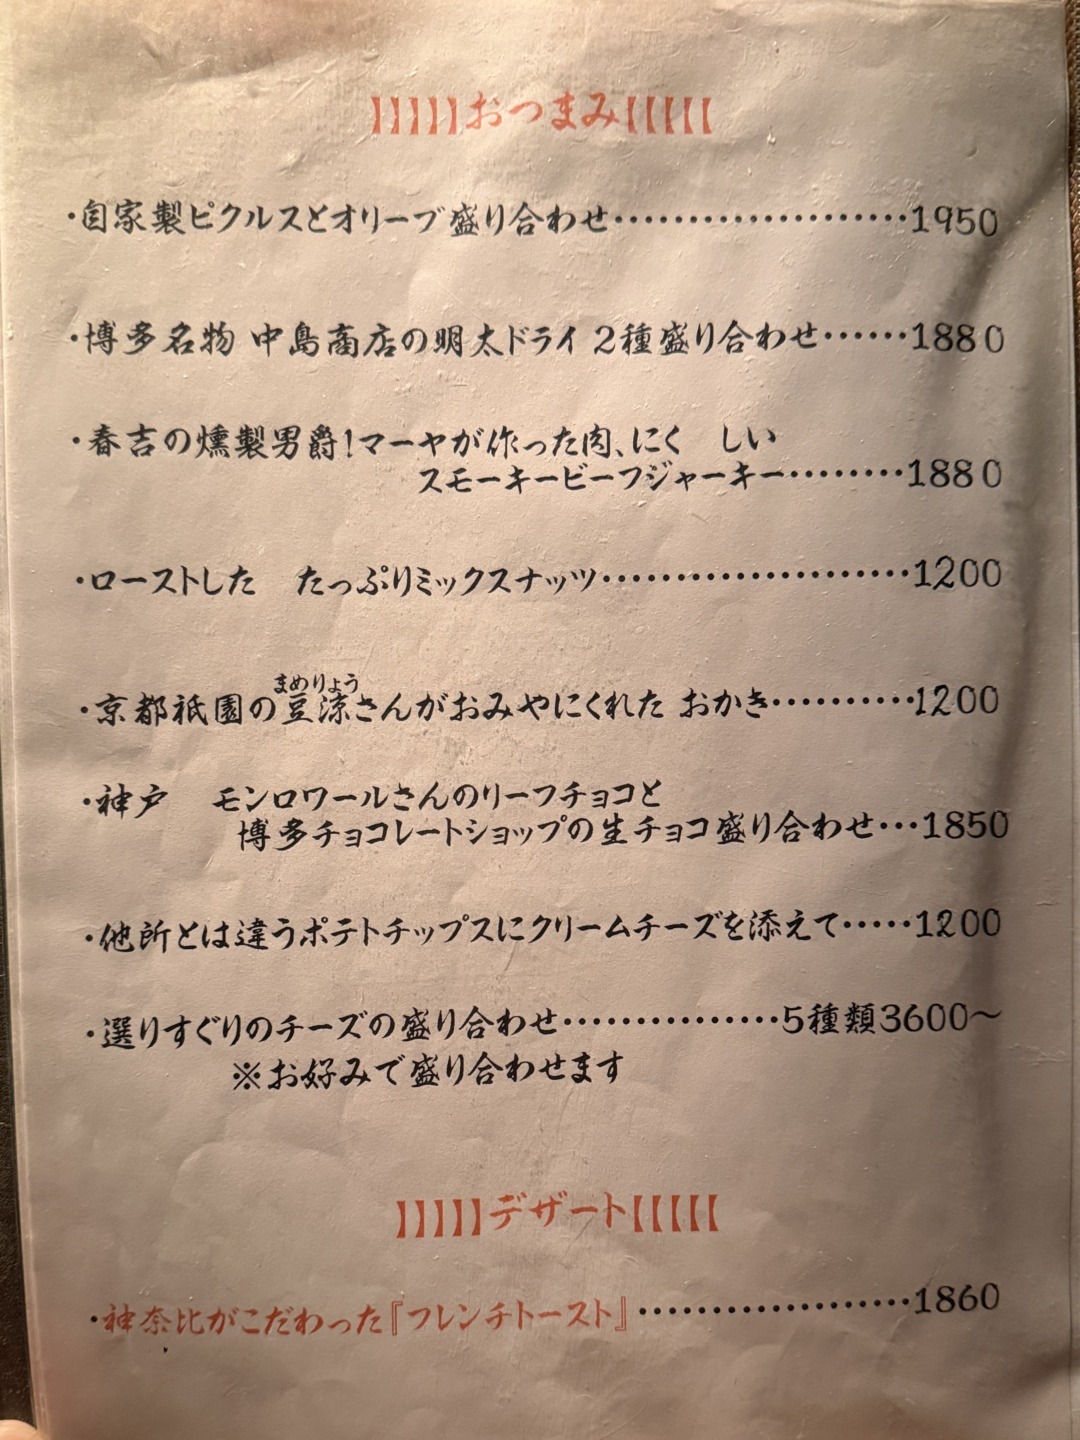 】】】】】おつまみ【【【【【
・自家製ピクルスとオリーブ盛り合わせ・・・・・・・・・・・・・・・・・・・・1950
・博多名物 中島商店の明太ドライ 2種盛り合わせ・・・・・・1880
・春吉の燻製男爵!マーヤが作った肉、にく　しい
スモーキービーフジャーキー・・・・・・・・1880
・ローストした　たっぷりミックスナッツ・・・・・・・・・・・・・・・・・・・・・1200
まめりょう
・京都祇園の豆涼さんがおみやにくれた おかき・・・・・・・・・・1200
・神戸　モンロワールさんのリーフチョコと
博多チョコレートショップの生チョコ盛り合わせ・・・1850
・他所とは違うポテトチップスにクリームチーズを添えて・・・・・1200
・選りすぐりのチーズの盛り合わせ・・・・・・・・・・・・・・・5種類3600〜
※お好みで盛り合わせます
】】】】】デザート【【【【【
・神奈比がこだわった『フレンチトースト』・・・・・・・・・・・・・・・・・・・1860